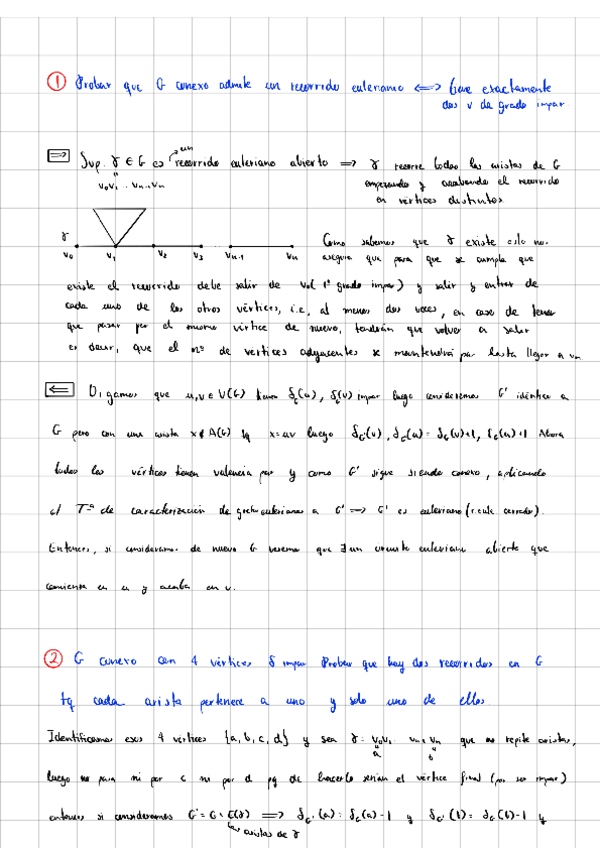 ① Probar que G conexo admite un recorrido euleriano ⟺ tiene exactamente
dos v de grado impar
⟹ Sup. γ ∈ G es un recorrido euleriano abierto ⟹ γ recorre todas las aristas de G
v₀v₁...vₙ₋₁vₙ empezando y acabando el recorrido
en vértices distintos
γ Como sabemos que γ existe esto nos
v₀ v₁ v₂ v₃ vₙ₋₁ vₙ asegura que para que se cumpla que
existe el recorrido debe salir de v₀ (1º grado impar) y salir y entrar de
cada uno de los otros vértices, i.e, al menos dos veces, en caso de tener
que pasar por el mismo vértice de nuevo, tendrán que volver a salir
es decir, que el nº de vertices adyacentes se mantendrá par hasta llegar a vₙ
⟸ Digamos que u,v ∈ V(G) tienen δ_G(u), δ_G(v) impar luego consideremos G' idéntico a
G pero con una arista x∉A(G) tq x=uv luego δ_G'(v), δ_G'(u) = δ_G(v)+1, δ_G(u)+1 Ahora
todos los vértices tienen valencia par y como G' sigue siendo conexo, aplicando
el Tª de caracterización de grafos eulerianos a G' ⟹ G' es euleriano (r. eule. cerrado).
Entonces, si consideramos de nuevo G veremos que ∃ un circuito euleriano abierto que
comienza en u y acaba en v.
② G conexo con 4 vértices δ impar Probar que hay dos recorridos en G
tq cada arista pertenece a uno y solo uno de ellos
Identificamos esos 4 vértices {a, b, c, d} y sea γ = v₀v₁...vₙ₋₁vₙ que no repite aristas,
a b
luego no para ni por c ni por d pq de hacerlo serían el vértice final (por ser impar)
entonces si consideramos G' = G \ E(γ) ⟹ δ_G'(a) = δ_G(a)-1 y δ_G'(b) = δ_G(b)-1 y
las aristas de γ